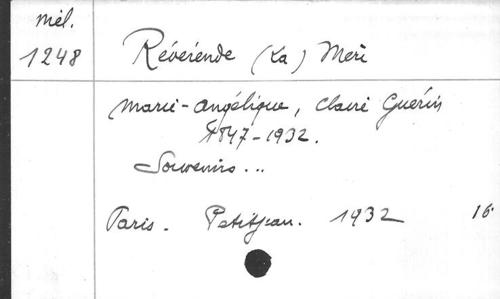 mél.
1248
Révérende (La) Mère
Marie-Angélique, Claire Guérin
1847-1932.
Souvenirs...
Paris. Petitjean. 1932 16